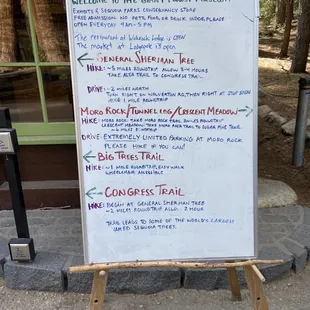 WELCOME TO THE GIANT FOREST MUSEUM
EXHIBITS & SEQUOIA PARKS CONSERVANCY STORE
FREE ADMISSION. NO PETS, FOOD, OR DRINK INSIDE, PLEASE
OPEN EVERYDAY 9AM - 5 PM
The restaurant at Wuksachi Lodge is OPEN
The market at Lodgepole is open
GENERAL SHERMAN TREE
HIKE: ~5 MILES ROUNDTRIP ALLOW 3-4 HOURS
TAKE ALTA TRAIL TO CONGRESS TRAIL
DRIVE: ~2 MILES NORTH
TURN RIGHT ON WOLVERTON RD, THEN RIGHT AT STOP SIGN
1 MILE ROUNDTRIP
MORO ROCK/TUNNEL LOG/CRESCENT MEADOW
HIKE: MORO ROCK: TAKE MORO ROCK TRAIL ROUNDTRIP
CRESCENT MEADOW: TAKE TRAIL TO SUGAR PINE TRAIL
~6 MILES ROUNDTRIP
DRIVE: EXTREMELY LIMITED PARKING AT MORO ROCK
PLEASE HIKE IF YOU CAN!
BIG TREES TRAIL
HIKE: ~1 MILE ROUNDTRIP, EASY WALK
WHEELCHAIR ACCESSIBLE
CONGRESS TRAIL
HIKE: BEGIN AT GENERAL SHERMAN TREE
~2 MILES ROUNDTRIP ALLOW 2 HOUR
TRAIL LEADS TO SOME OF THE WORLD'S LARGEST
NAMED SEQUOIA TREES.